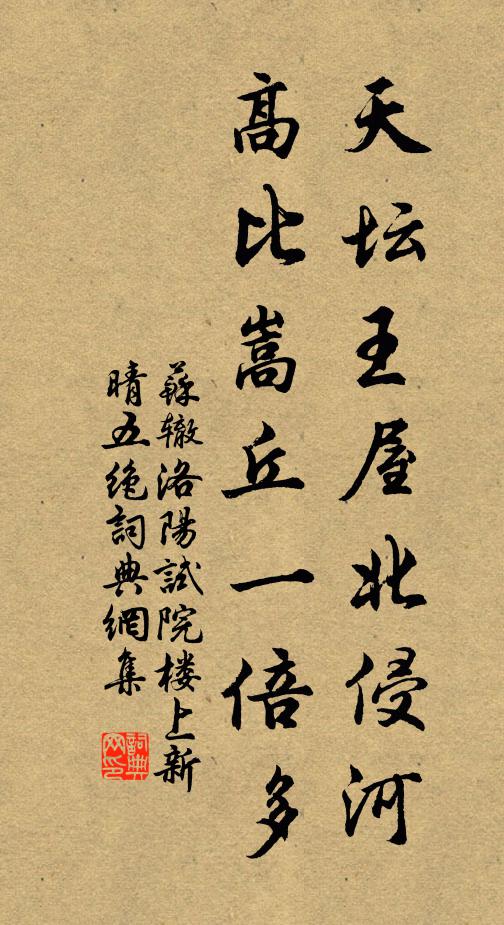 天坛王屋北侵河
高比嵩丘一倍多
蘇辙洛陽試院楼上新
晴五绝詞典網集
詞典
网印